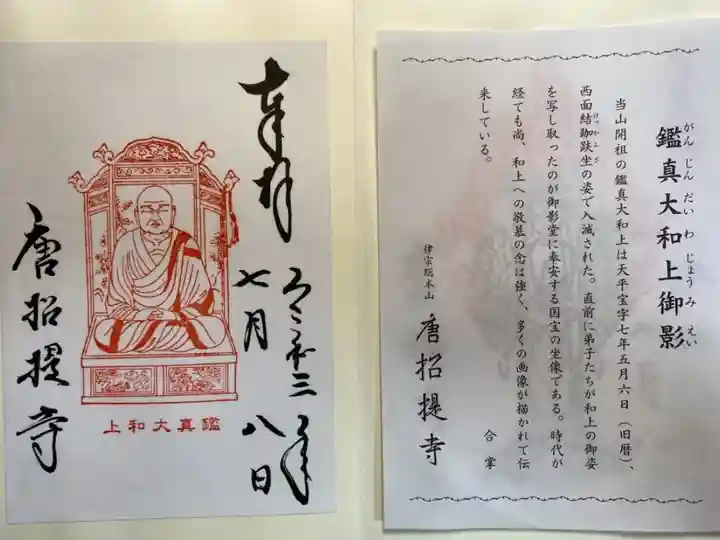 奉拝
令和三年
七月
八日
唐招提寺
上和大真鑑
鑑真大和上御影
がんじんだいわじょうみえい
当山開祖の鑑真大和上は天平宝字七年五月六日（旧暦）、
西面結跏趺坐の姿で入滅された。直前に弟子たちが和上の御姿
けっかふざ
を写し取ったのが御影堂に奉安する国宝の坐像である。時代が
経ても尚、和上への敬慕の念は強く、多くの画像が描かれて伝
来している。
合掌
律宗総本山
唐招提寺